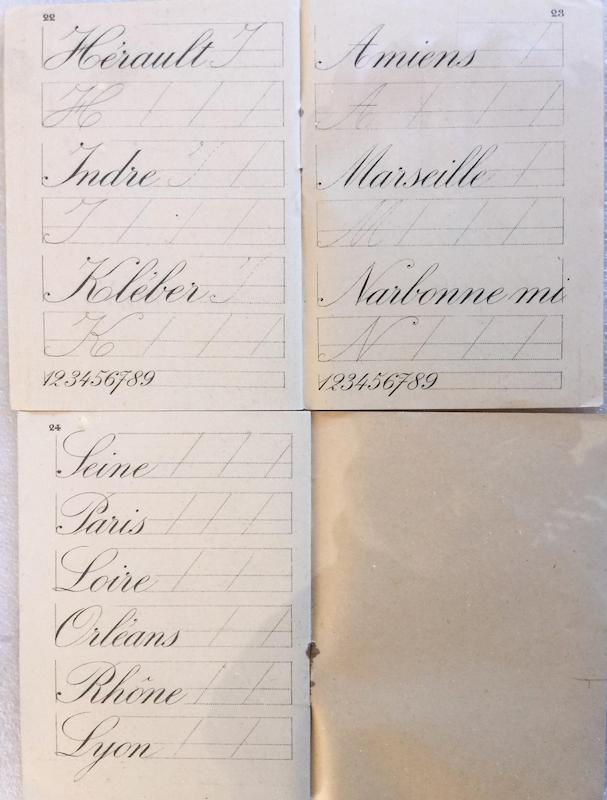 22
Hérault J
H
Indre J
J
Kléber J
K
123456789
23
Amiens
A
Marseille
M
Narbonne mi
N
123456789
24
Seine
Paris
Loire
Orléans
Rhône
Lyon